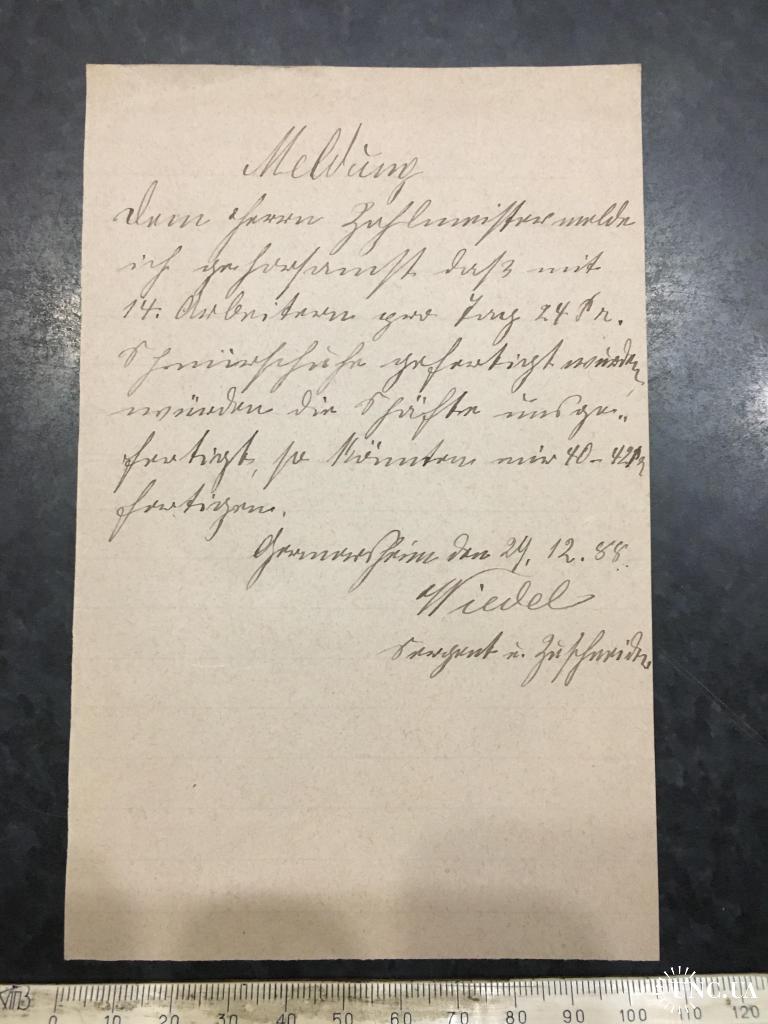 Meldung
Dem Herrn Zahlmeister melde
ich gehorsamst daß mit
14. Arbeitern pro Tag 24 Pr.
Schnürschuhe gefertigt wurden,
würden die Schäfte uns ge-
fertigt, so könnten wir 40-42 Pr
fertigen.
Germersheim den 29. 12. 88.
Wiedel
Sergent u. Zuschneider
0 10 20 30 40 50 60 70 80 90 100 110 120
UNC.UA